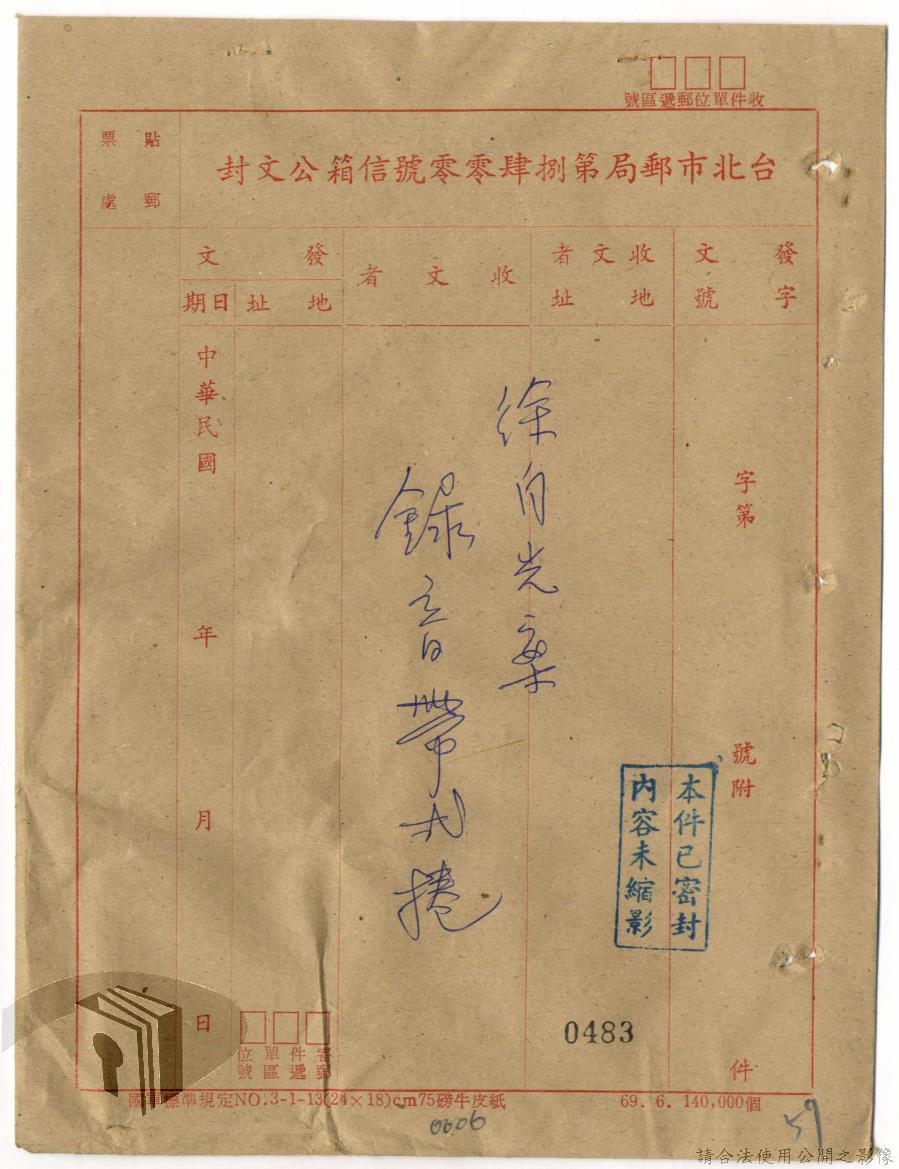 收件單位郵遞區號
台北市郵局第捌肆零零號信箱公文封
貼郵
票處
發字
文號
收文者
地址
收文者
發文
地址
日期
字第 號附 件
中華民國 年 月 日
徐自光案
錄音帶弍捲
本件已密封
內容未縮影
0483
寄件單位
郵遞區號
國軍標準規定NO.3-1-13(24×18)cm75磅牛皮紙
69.6.140,000個
0606
59
請合法使用公開之影像